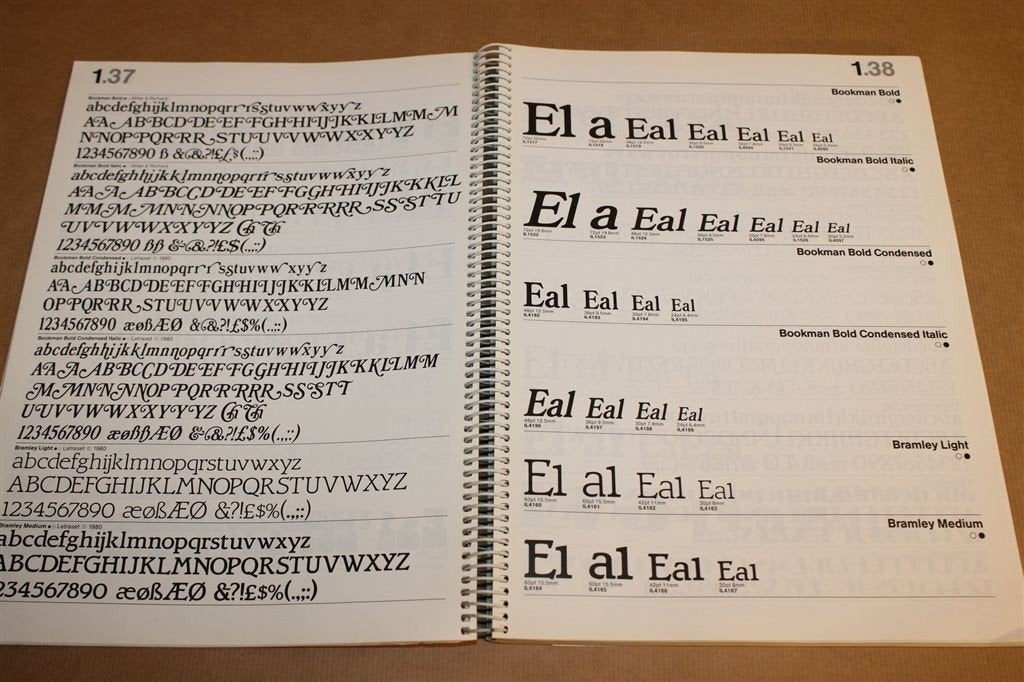 1.37
Bookman Bold
abcdefghijklmnopqrrsstuvwwxyyz
AAABBCDDEEFFGGHHIIJJKKLLMMM
NNOPPQRRRSTUUVVWWXXYYZ
1234567890 ß &&?!££$(.,:;)
Bookman Bold Italic
abcdefghhijkklmnnopqrrsstuvwwxyyz
1234567890 ßß &&?!££$(.,:;)
Bookman Bold Condensed Letraset © 1980
abcdefghijklmnopqrrsstuvwwxyyz
1234567890 æøßÆØ &&?!££$%(.,:;)
Bookman Bold Condensed Italic Letraset © 1980
1234567890 æøßßÆØ &&?!££$%(.,:;)
Bramley Light Letraset © 1980
abcdefghijklmnopqrstuvwxyz
ABCDEFGHIJKLMNOPQRSTUVWXYZ
1234567890 æøßÆØ &?!£$%(.,:;)
Bramley Medium Letraset © 1980
abcdefghijklmnopqrstuvwxyz
ABCDEFGHIJKLMNOPQRSTUVWXYZ
234567890 æøßÆØ &?!£$%(.,:;)
1.38
Bookman Bold
El a Eal Eal Eal Eal Eal
IL1517 IL1518 IL1519 IL1520 IL4094 IL1521 IL4095
Bookman Bold Italic
El a Eal Eal Eal Eal Eal
72pt 19.8mm 72pt 19.8mm 48pt 12.5mm 36pt 9.5mm 30pt 7.8mm 24pt 6.4mm 20pt 5.2mm
IL1522 IL1523 IL1524 IL1525 IL4096 IL1526 IL4097
Bookman Bold Condensed
Eal Eal Eal Eal
48pt 12.5mm 36pt 9.5mm 30pt 7.8mm 24pt 6.4mm
IL4192 IL4193 IL4194 IL4195
Bookman Bold Condensed Italic
Eal Eal Eal Eal
48pt 12.5mm 36pt 9.5mm 30pt 7.8mm 24pt 6.4mm
IL4196 IL4197 IL4198 IL4199
Bramley Light
El al Eal Eal
60pt 15.5mm 60pt 15.5mm 42pt 11mm 30pt 8mm
IL4160 IL4161 IL4162 IL4163
Bramley Medium
El al Eal Eal
60pt 15.5mm 60pt 15.5mm 42pt 11mm 30pt 8mm
IL4164 IL4165 IL4166 IL4167